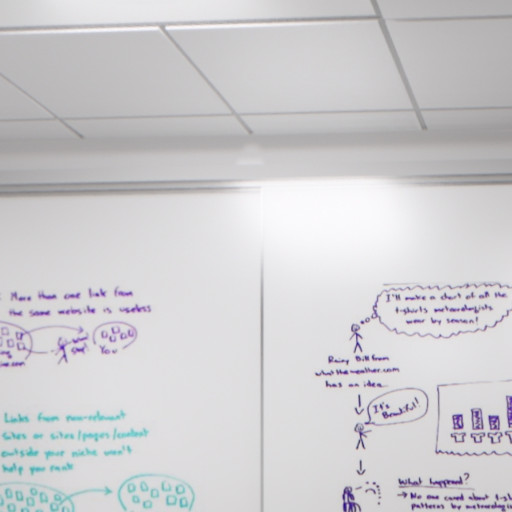 More than one link from
the same website is useless
You
Links from non-relevant
sites or sites/pages/content
outside your niche won't
help you rank
I'll make a chart of all the
t-shirts meteorologists
wear by season!
Rainy Bill from
whattheweather.com
has an idea.
It's
Beautiful!
What happened?
→ No one cared about t-sh
patterns by meteorologis